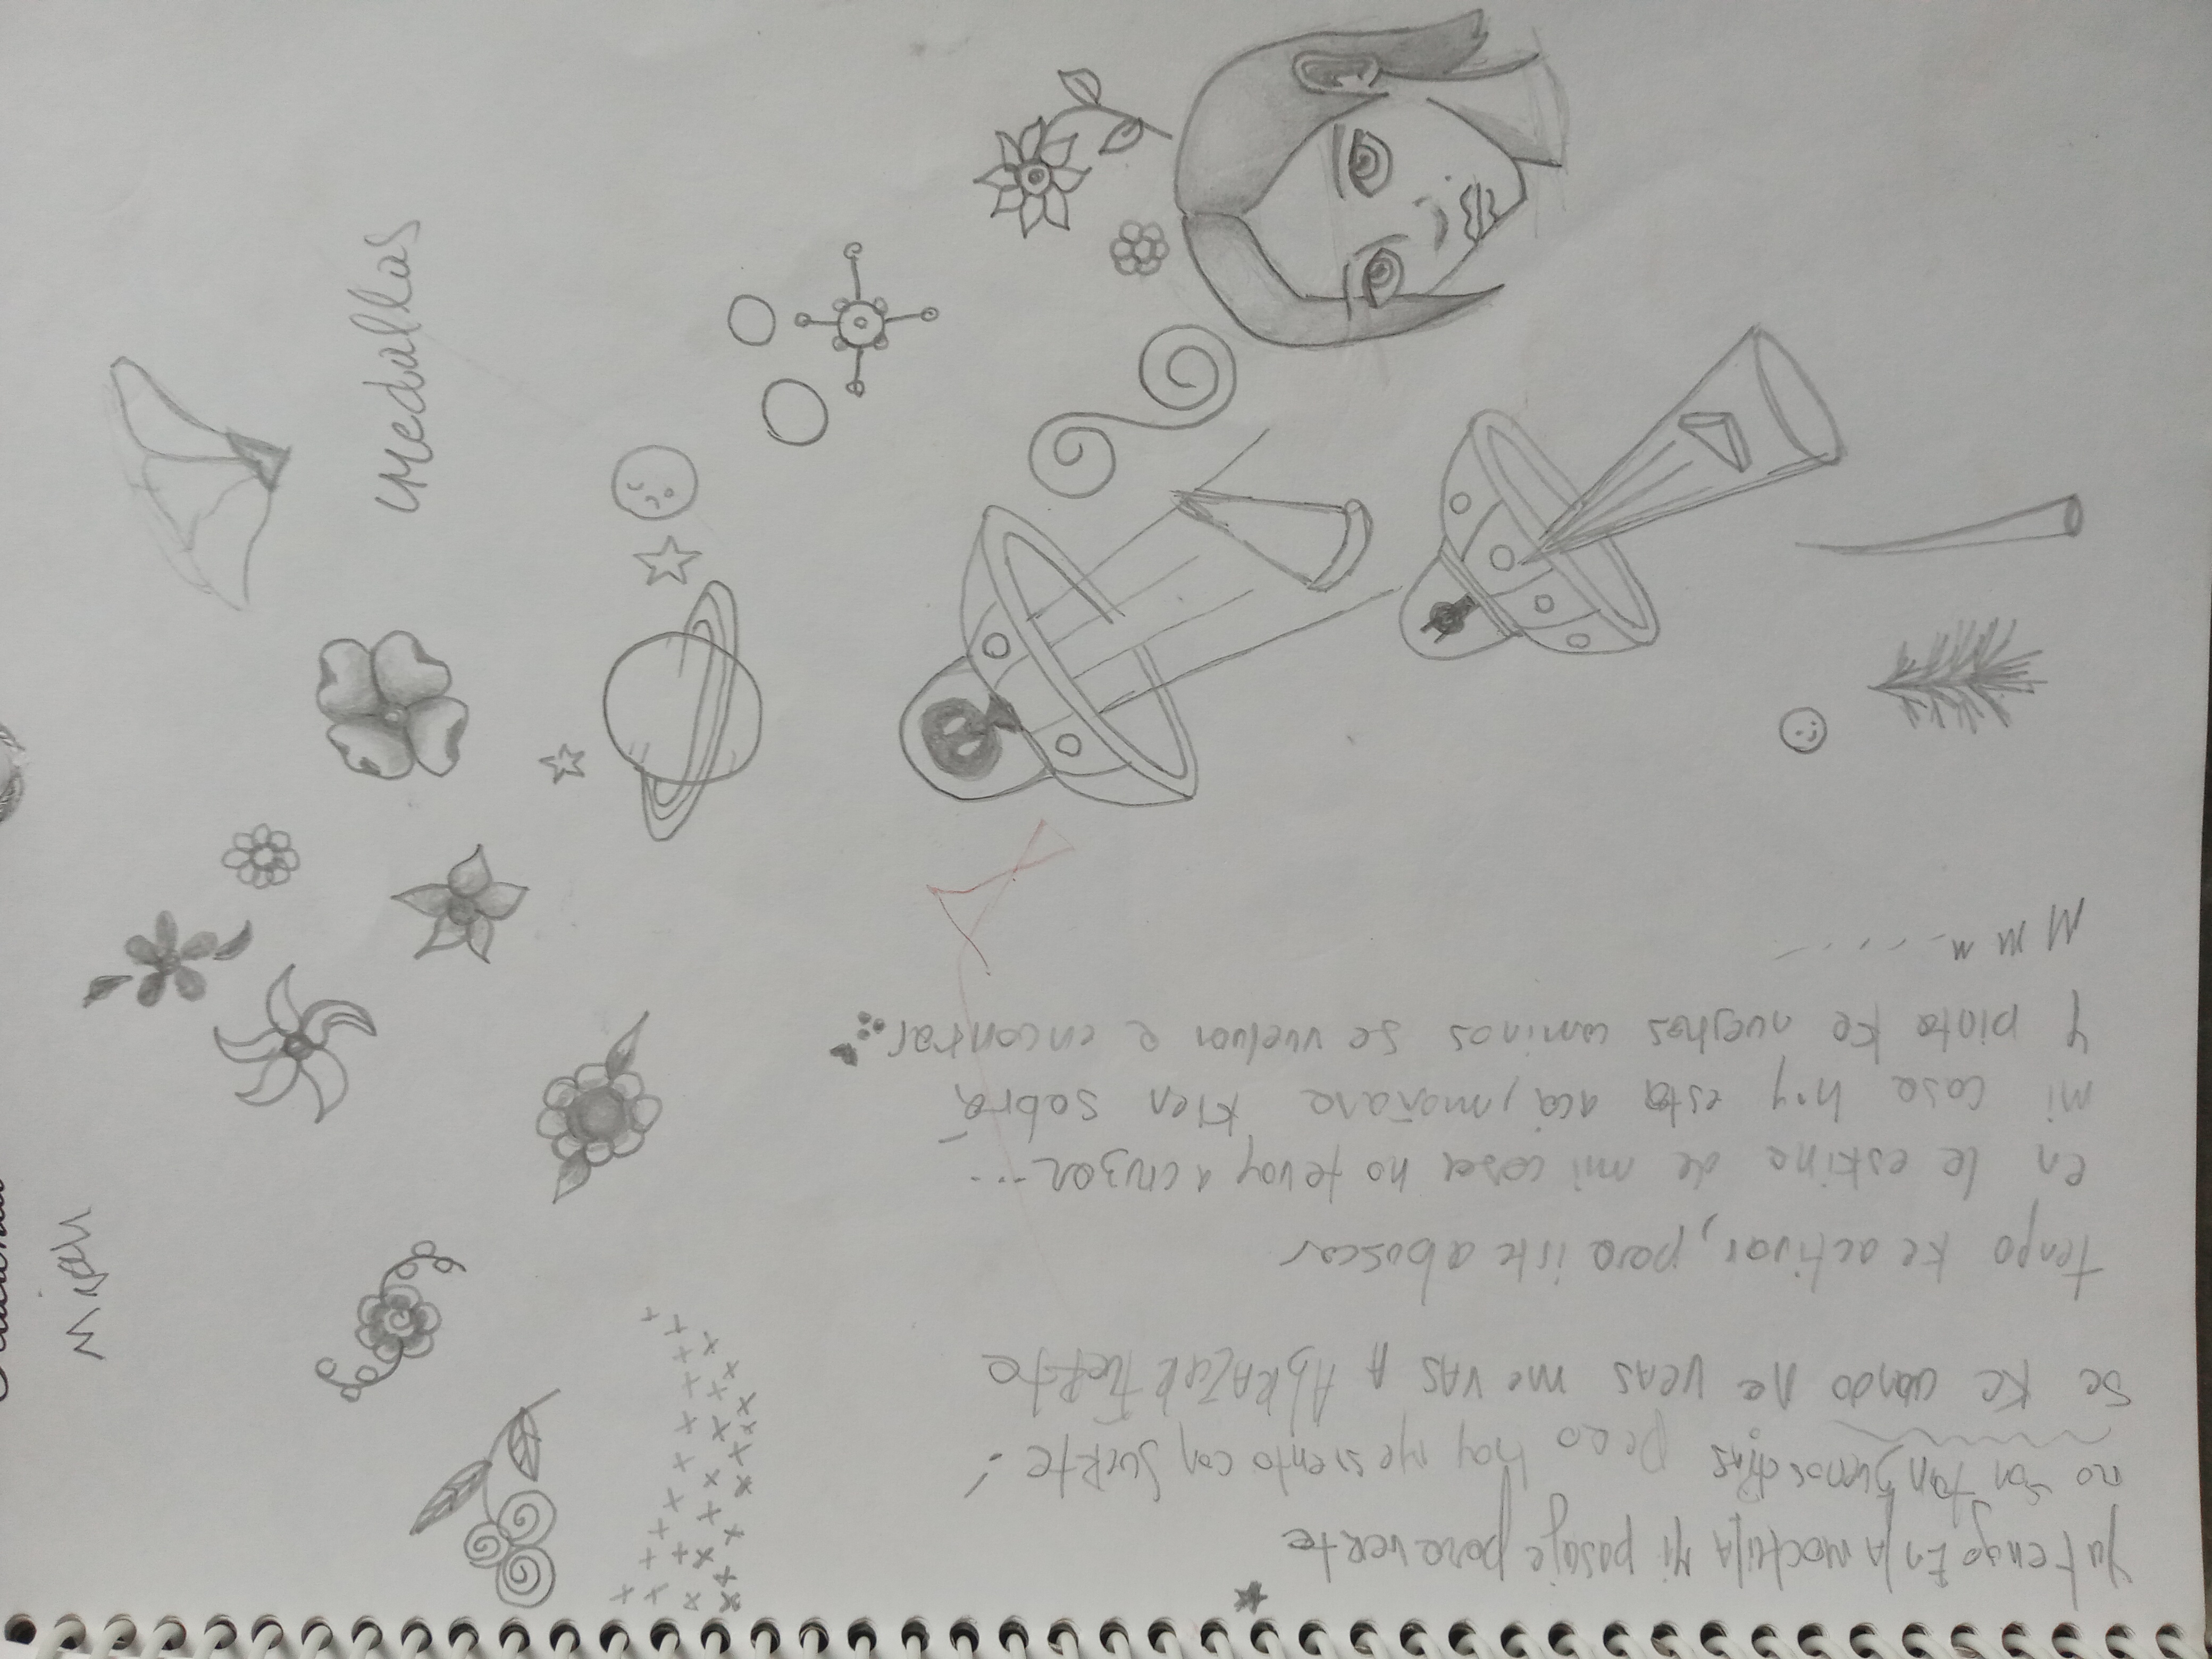 ya tengo En lA mochila Mi pasaje para verte
no son tan Buenos dias pero hoy me siento con Suerte
Se Ke uando me veas me vas A AbRAZAR FueRte
tengo ke activar, para irte a buscar
en la eskina de mi casa no te voy a cruzar...
mi casa hoy esta acá, mañana kien sabrá
y pinta ke nuestros caminos se vuelvan a encontrar
M m m
medallas